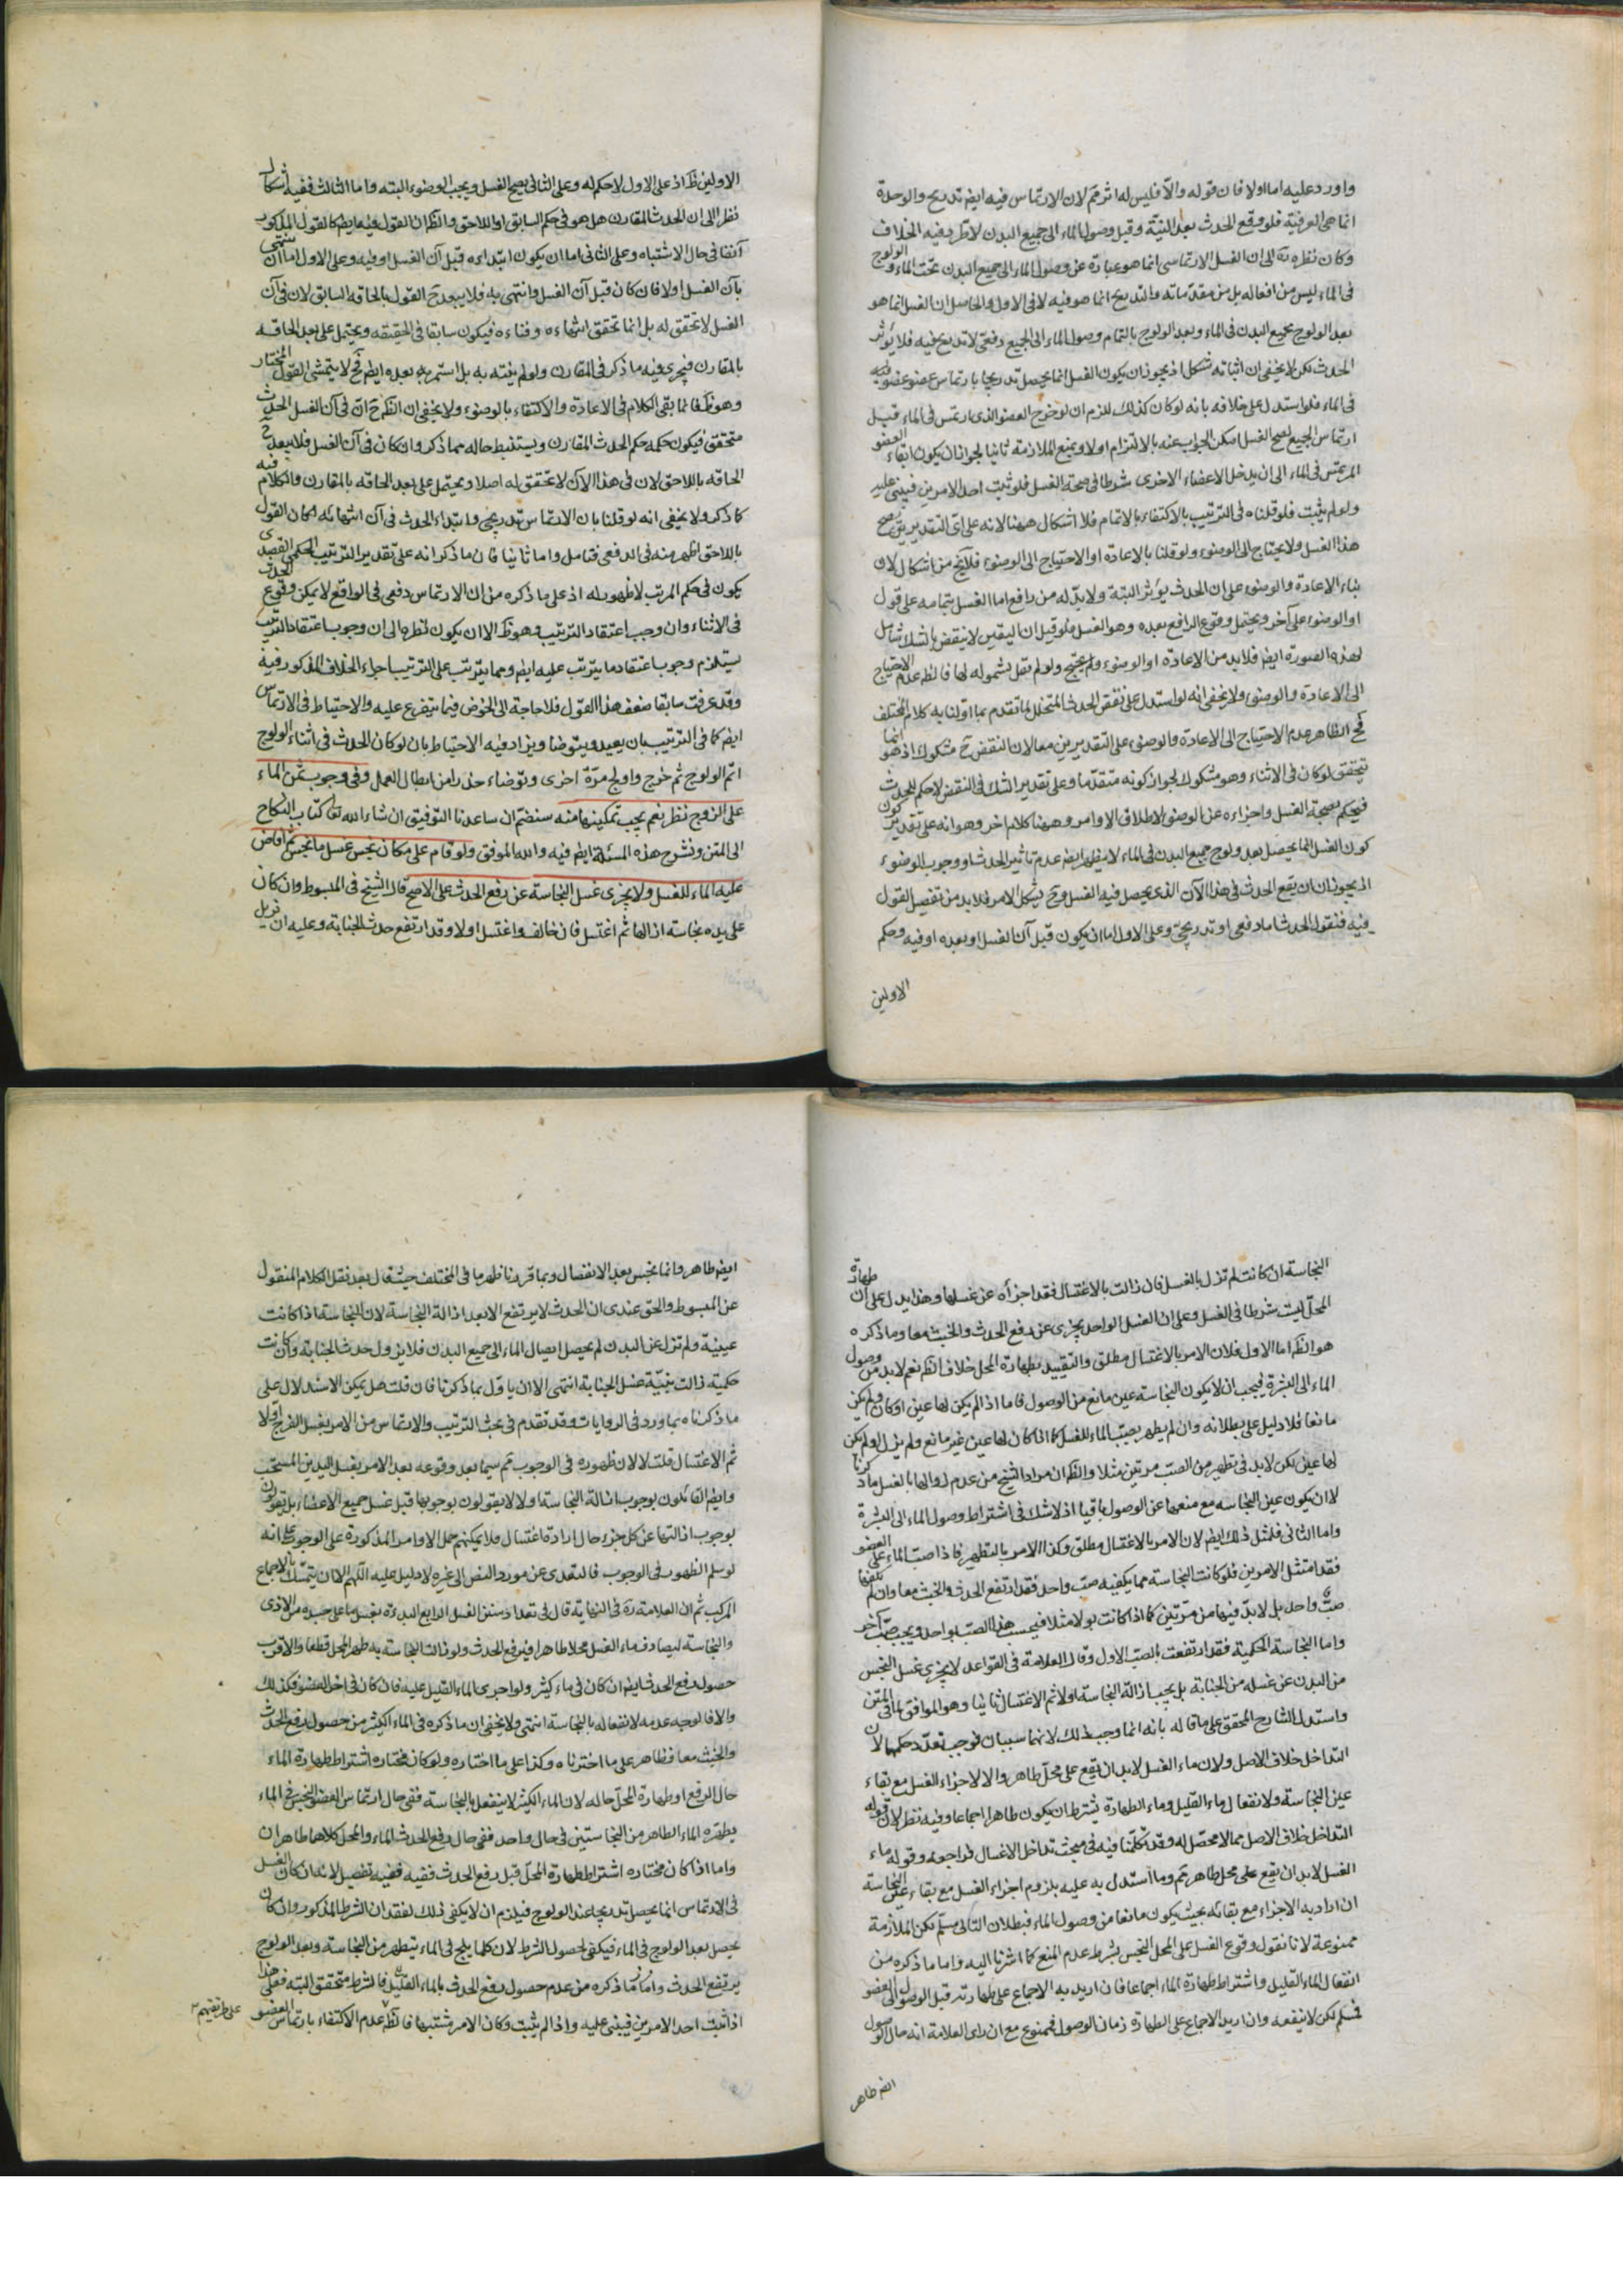 واورد عليه اما اولا فان قوله والّا فليس له اثر ثمّ لان الارتماس فيه ايضا تدريج والوحدة
انما هى العرفية فلو وقع الحدث بعد النية وقبل وصول الماء الى جميع البدن لاطّرد فيه الخلاف
وكان نظره ره الى ان الغسل الارتماسى انما هو عبارة عن وصول الماء الى جميع البدن تحت الماء والولوج
فى الماء ليس من افعاله بل من مقدماته والتدريج انما هو فيه لا فى الاول والحاصل ان الغسل انما هو
بعد الولوج بجميع البدن فى الماء وبعد الولوج بالتمام وصول الماء الى الجميع دفعىّ لا تدريج فيه فلا يؤثر
الحدث لكن لا يخفى ان اثباته مشكل اذ يجوز ان يكون الغسل انما يحصل تدريجا بارتماس عضو عضو منه
فى الماء فلو استدل على خلافه بانه لو كان كذلك للزم ان لو خرج العضو الذى ارتمس فى الماء قبل
ارتماس الجميع لصح الغسل امكن الجواب عنه بالالتزام اولا وبمنع الملازمة ثانيا لجواز ان يكون ابقاء العضو
المرتمس فى الماء الى ان يدخل الاعضاء الاخرى شرطا فى صحة الغسل فلو ثبت احد الامرين فيبنى عليه
ولو لم يثبت فلو قلنا فى الترتيب بالاكتفاء بالاتمام فلا اشكال ههنا لانه على اىّ التقديرين يصح
هذا الغسل ولا يحتاج الى الوضوء ولو قلنا بالاعادة او الاحتياج الى الوضوء فلا يخ من اشكال لان
بناء الاعادة والوضوء على ان الحدث يؤثر البتة ولا بدّ له من رافع اما الغسل بتمامه على قول
او الوضوء على آخر ويحتمل وقوع الرافع بعده وهو الغسل فلو قيل ان اليقين لا ينقض بالشك شامل
لهذه الصورة ايضا فلا بد من الاعادة او الوضوء ولم نقل بشموله لها فالظ عدم الاحتياج
الى الاعادة والوضوء ولا يخفى انه لو استدل على نقض الحدث المتخلل لما تقدم بما اوّلنا به كلام المختلف
فح الظاهر عدم الاحتياج الى الاعادة والوضوء على التقديرين معا لان النقض ح مشكوك اذ هو انما
يتحقق لو كان فى الاثناء وهو مشكوك لجواز كونه متقدما وعلى تقدير الشك فى النقض لا حكم للحدث
فيحكم بصحة الغسل واجزاءه عن الوضوء لاطلاق الاوامر وههنا كلام اخر وهو انه على تقدير كون
كون الغسل انما يحصل بعد ولوج جميع البدن فى الماء لا يظهر ايضا عدم تاثير الحدث او وجوب الوضوء
اذ يجوز ان يقع الحدث فى هذا الآن الذى يحصل فيه الغسل وح يشكل الامر فلا بد من تفصيل القول
فيه فنقول الحدث اما دفعى او تدريجى وعلى الاول اما ان يكون قبل آن الغسل او بعده او فيه وحكم
الاولين
الاولين ظ اذ على الاول لا حكم له وعلى الثانى يصح الغسل ويجب الوضوء البته واما الثالث ففيه اشكال
نظرا الى ان الحدث المقارن هل هو فى حكم السابق او اللاحق والظ ان القول فيه ايضا كالقول المذكور
آنفا فى حال الاشتباه وعلى الثانى اما ان يكون ابتداءه قبل آن الغسل او فيه وعلى الاول اما ان ينتهى
بآن الغسل اولا فان كان قبل آن الغسل وانتهى به فلا يبعد ح القول بالحاقه السابق لان فى آن
الغسل لا تحقق له بل انما تحقق انتهاءه وفناءه فيكون سابقا فى الحقيقه ويحتمل على بعد الحاقه
بالمقارن فيجرى فيه ما ذكر فى المقارن ولو لم ينته به بل استمر به بعده ايضا فح لا يتمشى القول المختار
وهو ظ فانما بقى الكلام فى الاعادة والاكتفاء بالوضوء ولا يخفى ان الظ ح انّ فى آن الغسل الحدث
متحقق فيكون حكمه حكم الحدث المقارن ويستنبط حاله مما ذكر وان كان فى آن الغسل فلا يبعد ح
الحاقه باللاحق لان فى هذا الآن لا تحقق له اصلا ويحتمل على بعد الحاقه بالمقارن والكلام فيه
كما ذكر ولا يخفى انه لو قلنا بان الارتماس تدريجى وابتداء الحدث فى آن انتهائه لكان القول
باللاحق اظهر منه فى الدفعى فتامل واما ثانيا فان ما ذكر انه على تقدير الترتيب الحكمى القصدى
يكون فى حكم المرتب لا ظهور له اذ على ما ذكره من ان الارتماس دفعى فى الواقع لا يمكن وقوع الحدث
فى الاثناء وان وجب اعتقاد الترتيب وهو ظ الا ان يكون نظره الى ان وجوب اعتقاد الترتيب
يستلزم وجوب اعتقاد ما يترتب عليه ايضا ومما يترتب على الترتيب اجراء الخلاف المذكور فيه
وقد عرفت سابقا ضعف هذا القول فلا حاجة الى الخوض فيما يتفرع عليه والاحتياط فى الارتماس
ايضا كما فى الترتيب بان يعيد ويتوضا ويزاد فيه الاحتياط بان لو كان الحدث فى اثناء الولوج
اتم الولوج ثم خرج واولج مرّة اخرى وتوضاء حذرا من ابطال العمل وفى وجوب ثمن الماء
على الزوج نظر نعم يجب تمكينها منه سنضم ان ساعدنا التوفيق ان شاء الله تعا كتاب النكاح
الى المتن ونشرح هذه المسئلة ايضا فيه والله الموفق ولو قام على مكان نجس غسل ما نجس ثم افاض
عليه الماء للغسل ولا يجزى غسل النجاسة عن رفع الحدث على الاصح قال الشيخ فى المبسوط وان كان
على بدنه نجاسة ازالها ثم اغتسل فان خالف واغتسل اولا وقد ارتفع حدث الجنابة وعليه ان يزيل
النجاسة ان كانت لم تزل بالغسل فان زالت بالاغتسال فقد اجزأه عن غسلها وهذا يدل على ان طهارة
المحلّ ليست شرطا فى الغسل وعلى ان الغسل الواحد يجزى عن رفع الحدث والخبث معا وما ذكره
هو الظ اما الاول فلان الامر بالاغتسال مطلق والتقييد بطهارة المحل خلاف الظ نعم لا بد من وصول
الماء الى البشرة فيجب ان لا يكون النجاسة عين مانع من الوصول فاما اذا لم يكن لها عين او كان ولم يكن
مانعا فلا دليل على بطلانه وان لم يطهر بصبّ الماء للغسل كما اذا كان لها عين غير مانع ولم يزل او لم يكن
لها عين لكن لا بد فى تطهير من الصب مرتين مثلا والظ ان مراد الشيخ من عدم زوالها بالغسل ما ذكرنا
لا ان يكون عين النجاسة مع منعها عن الوصول باقيا اذ لا شك فى اشتراط وصول الماء الى البشرة
واما الثانى فلمثل ذلك ايضا لان الامر بالاغتسال مطلق وكذا الامر بالتطهير فاذا صبّ الماء على العضو
فقد امتثل الامرين فلو كانت النجاسة مما يكفيه صب واحد فقد ارتفع الحدث والخبث معا وان لم يكفها
صبّ واحد بل لا بدّ فيها من مرتين كما اذا كانت بولا مثلا فيحسب هذا الصبّ بواحد ويجب صبّ آخر
واما النجاسة الحكمية فقد ارتفعت بالصب الاول وقال العلامة فى القواعد لا يجزى غسل النجس
من البدن عن غسله من الجنابة بل يجب ازالة النجاسة اولا ثم الاغتسال ثانيا وهو الموافق لما فى المتن
واستدل الشارح المحقق على ما قاله بانه انما وجب ذلك لانهما سببان فوجب تعدّد حكمهما لان
التداخل خلاف الاصل ولان ماء الغسل لا بد ان يقع على محلّ طاهر والا لاجزاء الغسل مع بقاء
عين النجاسة ولانفعال ماء القليل وماء الطهارة يشترط ان يكون طاهرا اجماعا وفيه نظر لان قوله
التداخل خلاف الاصل مما لا محصّل له وقد تكلّمنا فيه فى مبحث تداخل الاغسال فراجعه وقوله ماء
الغسل لا بد ان يقع على محل طاهر ثم وما استدل به عليه بلزوم اجزاء الغسل مع بقاء عين النجاسة
ان اراد به الاجزاء مع بقائه بحيث يكون مانعا من وصول الماء فبطلان التالى مسلّم لكن الملازمة
ممنوعة لانا نقول وقوع الغسل على المحل النجس بشرط عدم المنع كما اشرنا اليه واما ما ذكره من
انفعال الماء القليل واشتراط طهارة الماء اجماعا فان اريد به الاجماع على طهارته قبل الوصول الى العضو
فمسلم لكن لا ينفعه وان اريد الاجماع على الطهارة زمان الوصول فممنوع مع ان راى العلامة انه حال الوصول
ايضا طاهر
ايضا طاهر وانما نجس بعد الانفصال وبما قررنا ظهر ما فى المختلف حيث قال بعد نقل الكلام المنقول
عن المبسوط والحق عندى ان الحدث لا يرتفع الا بعد ازالة النجاسة لان النجاسة اذا كانت
عينيّة ولم تزل عن البدن لم يحصل ايصال الماء الى جميع البدن فلا يزول حدث الجنابة وان كانت
حكمية زالت بنيّة غسل الجنابة انتهى الا ان ياوّل بما ذكرنا فان قلت هل يمكن الاستدلال على
ما ذكرناه بما ورد فى الروايات وقد تقدم فى بحث الترتيب والارتماس من الامر بغسل الفرج اوّلا
ثم الاغتسال قلت لا لان ظهوره فى الوجوب ثم سيما بعد وقوعه بعد الامر بغسل اليدين المستحب
وايضا القائلون بوجوب ازالة النجاسة اولا لا يقولون بوجوبها قبل غسل جميع الاعضاء بل يقولون
بوجوب ازالتها عن كل جزء حال ارادة اغتسال فلا يمكنهم حمل الاوامر المذكورة على الوجوب على انه
لو سلم الظهور فى الوجوب فالتعدى عن مورد النص الى غيره لا دليل عليه اللهم الا ان يتمسك بالاجماع
المركب ثم ان العلامة ره فى النهاية قال فى تعداد سنن الغسل الرابع البدءة بغسل ما على جسده من الاذى
والنجاسة ليصادف ماء الغسل محلا طاهرا فيرفع الحدث ولو زالت النجاسة به طهر المحل قطعا والاقرب
حصول رفع الحدث ايضا ان كان فى ماء كثير ولو اجرى الماء القليل عليه فان كان فى اخر العضو فكذلك
والا فالوجه عدمه لانفعاله بالنجاسة انتهى ولا يخفى ان ما ذكره فى الماء الكثير من حصول رفع الحدث
والخبث معا فظاهر على ما اخترناه وكذا على ما اختاره ولو كان مختاره اشتراط طهارة الماء
حال الرفع او طهارة المحلّ حاله لان الماء الكثير لا ينفعل بالنجاسة ففى حال ارتماس العضو النجس فى الماء
يطهّره الماء الطاهر من النجاستين فى حال واحد ففى حال رفع الحدث الماء والمحل كلاهما طاهران
واما اذا كان مختاره اشتراط طهارة المحلّ قبل رفع الحدث ففيه تفصيل لانه ان كان الغسل
فى الارتماس انما يحصل تدريجا عند الولوج فيلزم ان لا يكفى ذلك لفقدان الشرط المذكور وان كان
يحصل بعد الولوج فى الماء فيكفى لحصول الشرط لان كلما يلج فى الماء يتطهر من النجاسة وبعد الولوج
يرتفع الحدث واما ما ذكره من عدم حصول رفع الحدث بالماء القليل فالشرط متحقق البته فعلى هذا
اذا ثبت احد الامرين فيبنى عليه واذا لم يثبت وكان الامر مشتبها فالظ عدم الاكتفاء بارتماس العضو
على طريقتهم